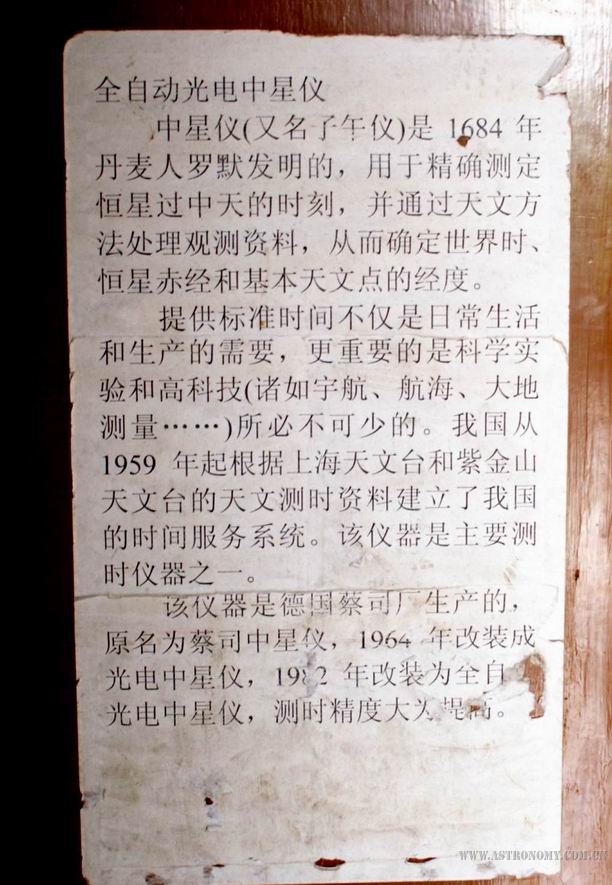 全自动光电中星仪
中星仪(又名子午仪)是 1684 年
丹麦人罗默发明的，用于精确测定
恒星过中天的时刻，并通过天文方
法处理观测资料，从而确定世界时、
恒星赤经和基本天文点的经度。
提供标准时间不仅是日常生活
和生产的需要，更重要的是科学实
验和高科技(诸如宇航、航海、大地
测量……)所必不可少的。我国从
1959 年起根据上海天文台和紫金山
天文台的天文测时资料建立了我国
的时间服务系统。该仪器是主要测
时仪器之一。
该仪器是德国蔡司厂生产的，
原名为蔡司中星仪，1964 年改装成
光电中星仪，1982 年改装为全自
光电中星仪，测时精度大为提高。
WWW.ASTRONOMY.COM.CN